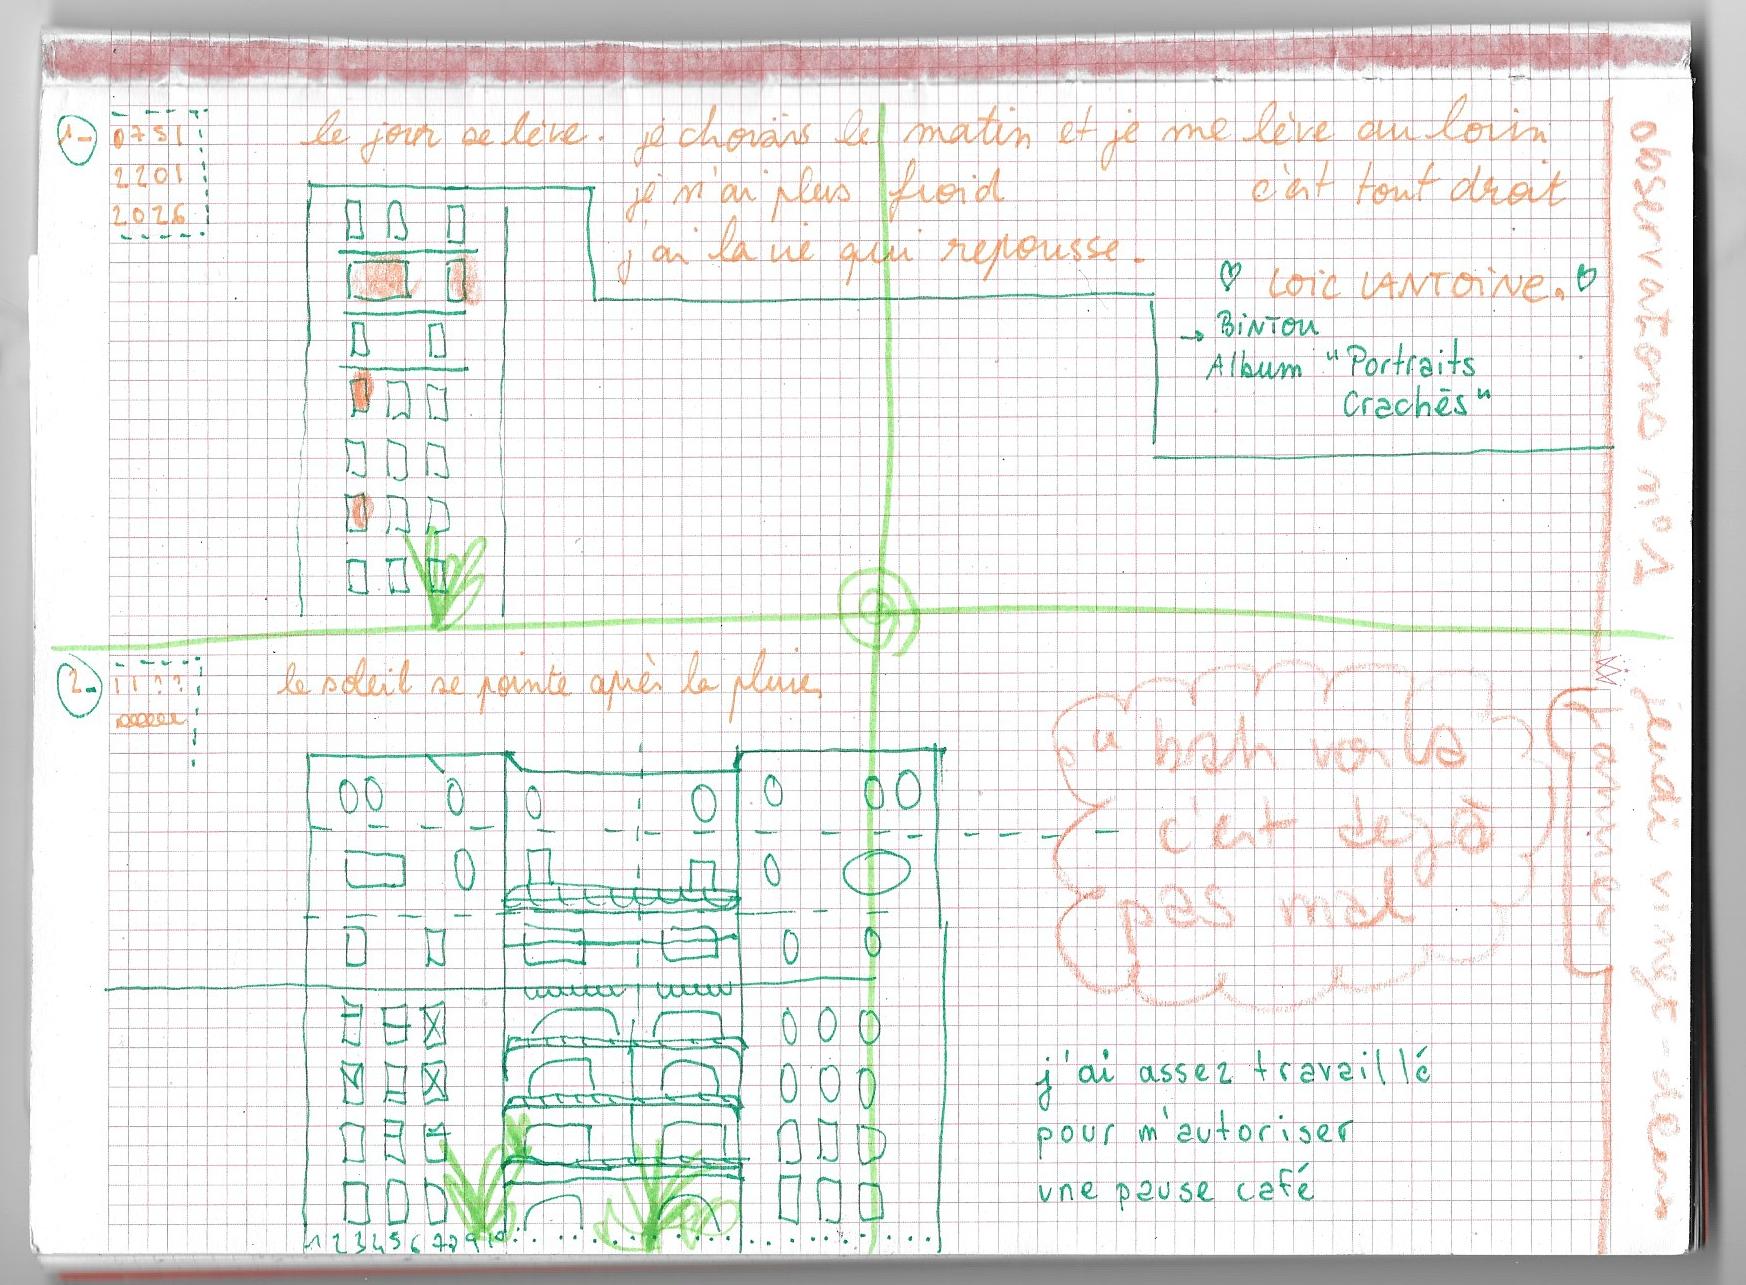 1-
0751
2201
2026
le jour se lève. je choisis le matin et je me lève au loin
je n'ai plus froid c'est tout droit
j'ai la vie qui repousse.
♡ LOIC LANTOINE. ♡
→ BINTOU
Album "Portraits
Crachés"
observations n°1
2-
11??
le soleil se pointe après la pluie
jeudi vingt-deux
janvier
" bah voilà
c'est déjà
pas mal
j'ai assez travaillé
pour m'autoriser
une pause café
1 2 3 4 5 6 7 8 9 10